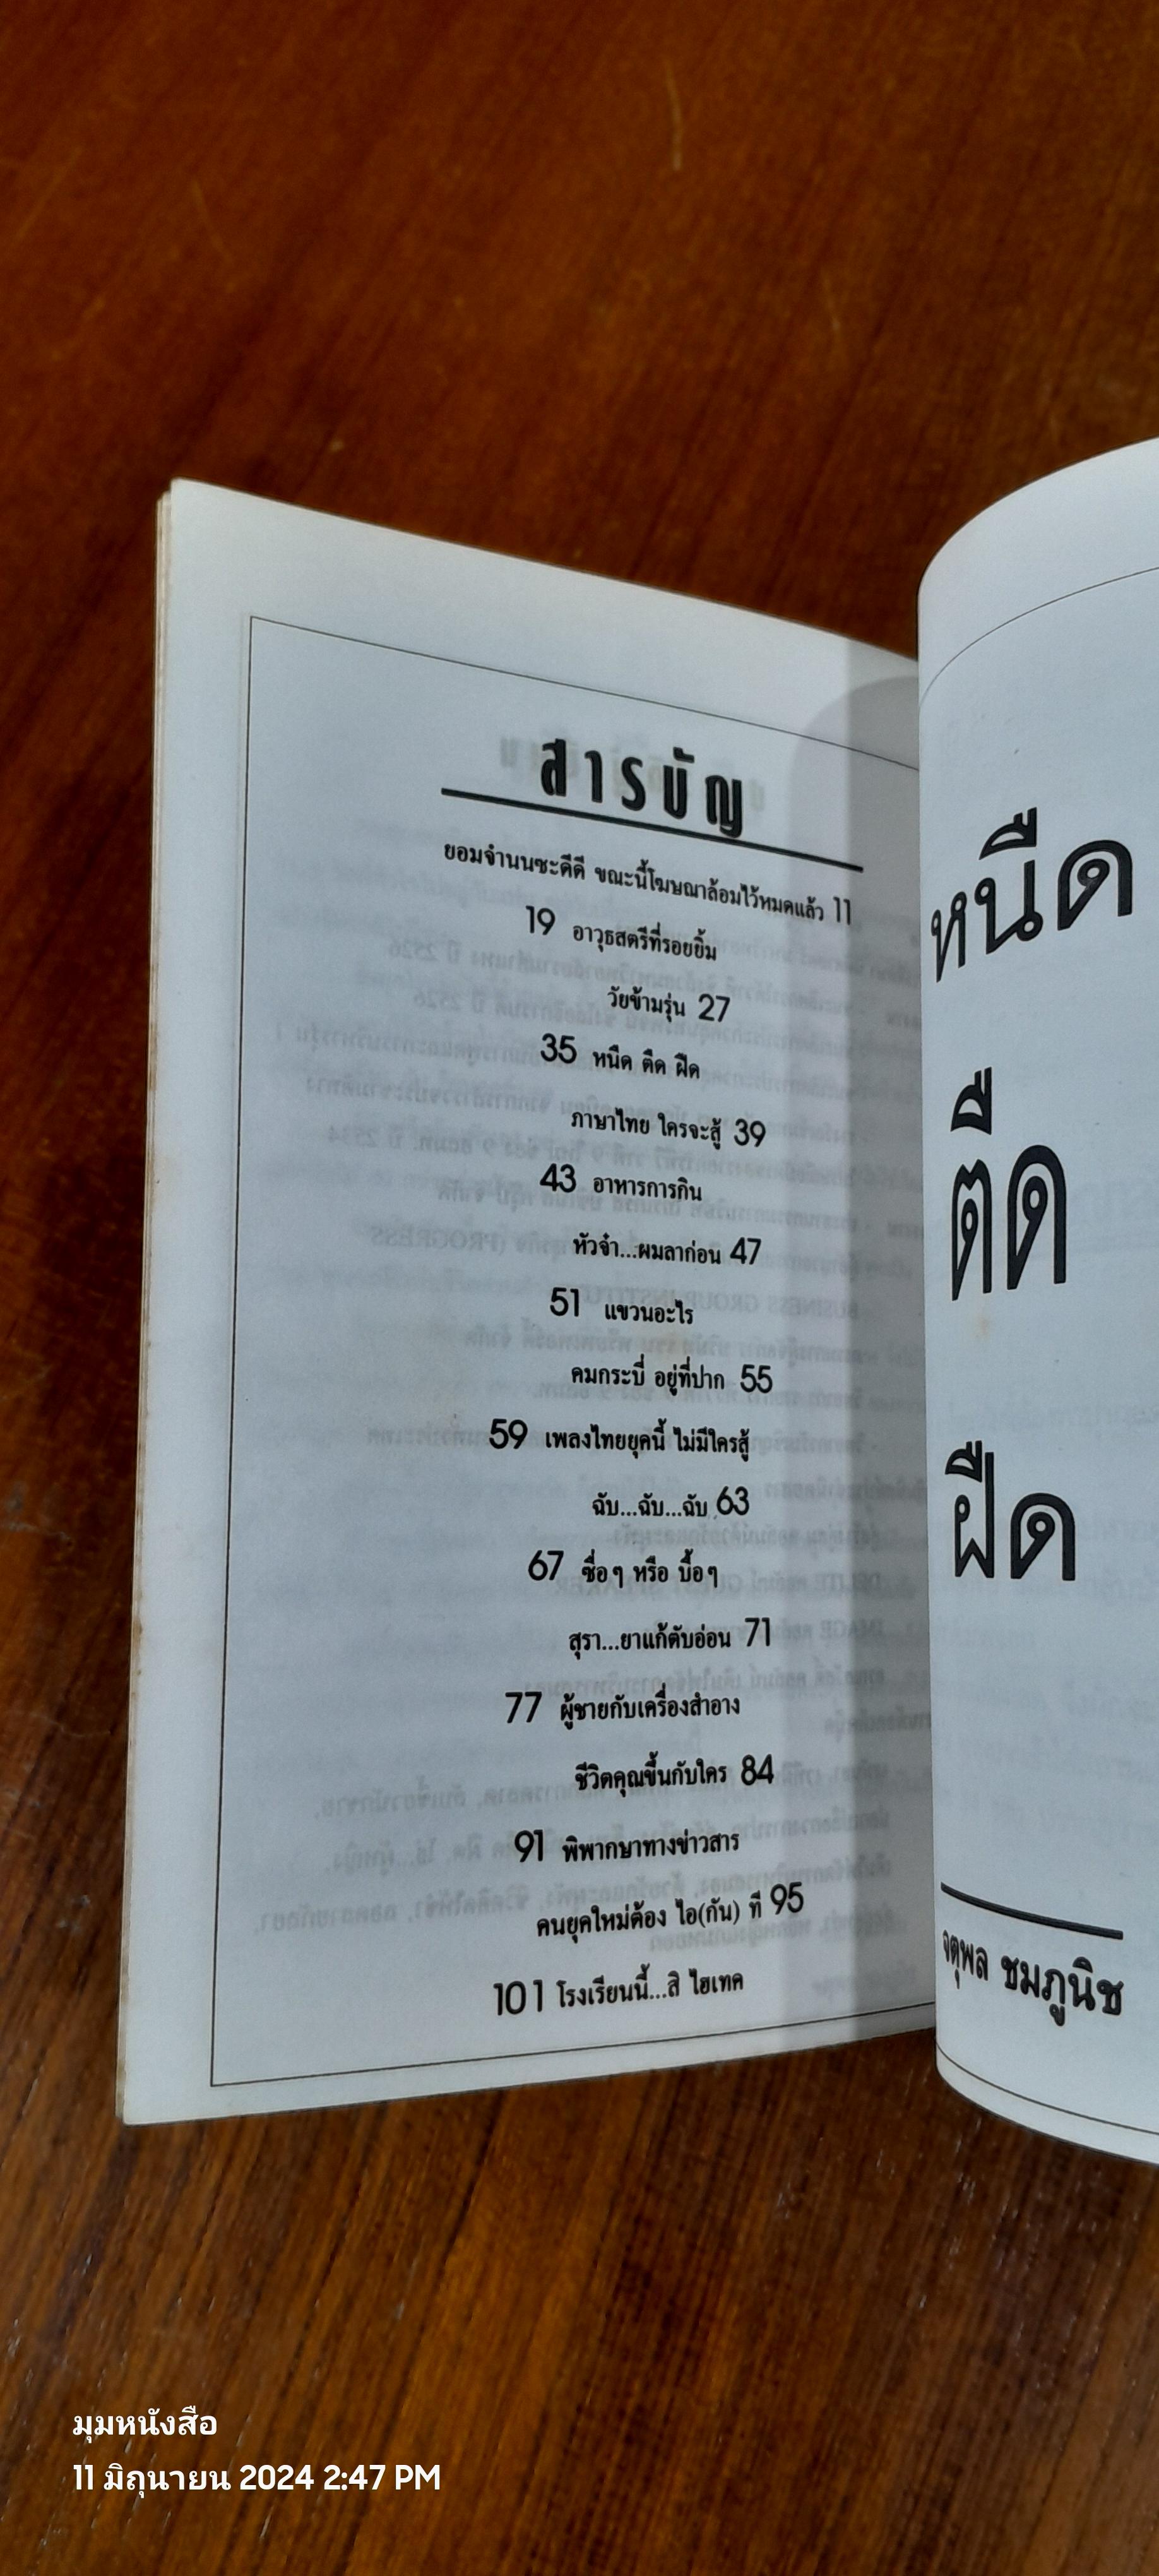 สารบัญ
ยอมจำนนซะดีดี ขณะนี้โฆษณาล้อมไว้หมดแล้ว 11
19 อาวุธสตรีที่รอยยิ้ม
วัยข้ามรุ่น 27
35 หนืด ตืด ฝืด
ภาษาไทย ใครจะสู้ 39
43 อาหารการกิน
หัวจ๋า...ผมลาก่อน 47
51 แขวนอะไร
คมกระบี่ อยู่ที่ปาก 55
59 เพลงไทยยุคนี้ ไม่มีใครสู้
ฉับ...ฉับ...ฉับ 63
67 ซื่อๆ หรือ บื้อๆ
สุรา...ยาแก้ตับอ่อน 71
77 ผู้ชายกับเครื่องสำอาง
ชีวิตคุณขึ้นกับใคร 84
91 พิพากษาทางข่าวสาร
คนยุคใหม่ต้อง ไอ(กัน) ที 95
101 โรงเรียนนี้...สิ ไฮเทค
หนืด
ตืด
ฝืด
จตุพล ชมภูนิช
มุมหนังสือ
11 มิถุนายน 2024 2:47 PM